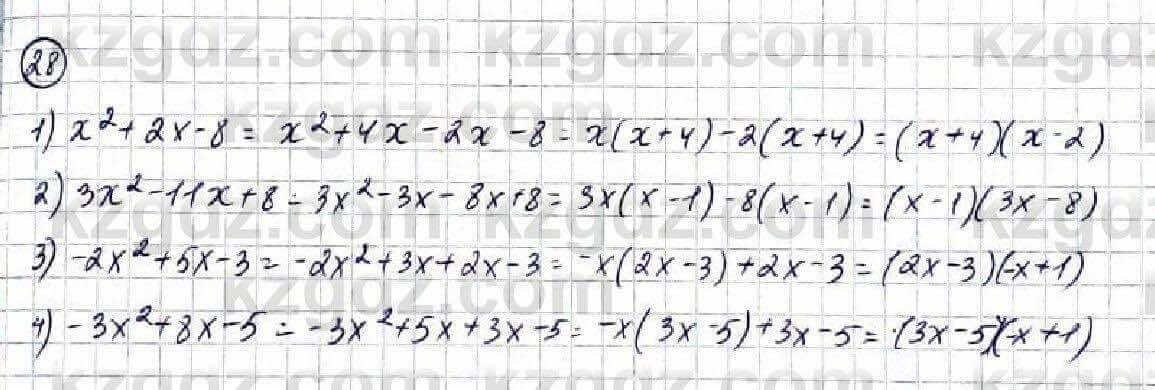 kzgdz.com kzgdz.com kzgdz
28
1) x²+2x-8 = x²+4x-2x-8 = x(x+4)-2(x+4) = (x+4)(x-2)
2) 3x²-11x+8 = 3x²-3x-8x+8 = 3x(x-1)-8(x-1) = (x-1)(3x-8)
3) -2x²+5x-3 = -2x²+3x+2x-3 = -x(2x-3)+2x-3 = (2x-3)(-x+1)
kzgdz.com
4) -3x²+8x-5 = -3x²+5x+3x-5 = -x(3x-5)+3x-5 = (3x-5)(-x+1)